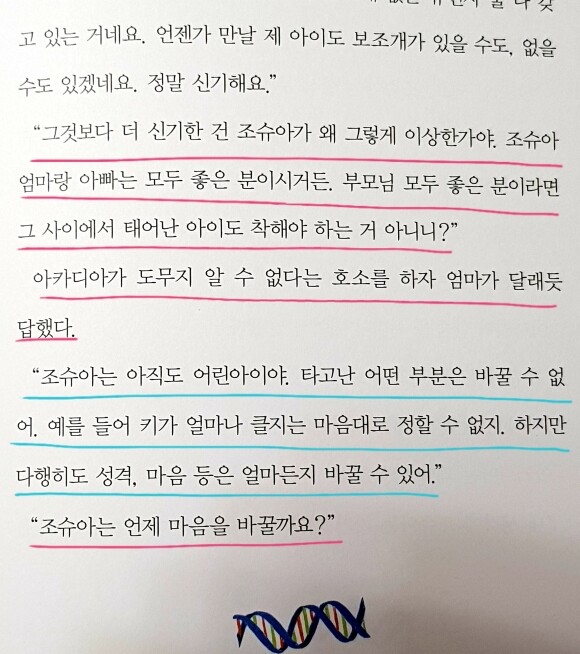 고 있는 거네요. 언젠가 만날 제 아이도 보조개가 있을 수도, 없을
수도 있겠네요. 정말 신기해요.”
“그것보다 더 신기한 건 조슈아가 왜 그렇게 이상한가야. 조슈아
엄마랑 아빠는 모두 좋은 분이시거든. 부모님 모두 좋은 분이라면
그 사이에서 태어난 아이도 착해야 하는 거 아니니?”
아카디아가 도무지 알 수 없다는 호소를 하자 엄마가 달래듯
답했다.
“조슈아는 아직도 어린아이야. 타고난 어떤 부분은 바꿀 수 없
어. 예를 들어 키가 얼마나 클지는 마음대로 정할 수 없지. 하지만
다행히도 성격, 마음 등은 얼마든지 바꿀 수 있어.”
“조슈아는 언제 마음을 바꿀까요?”